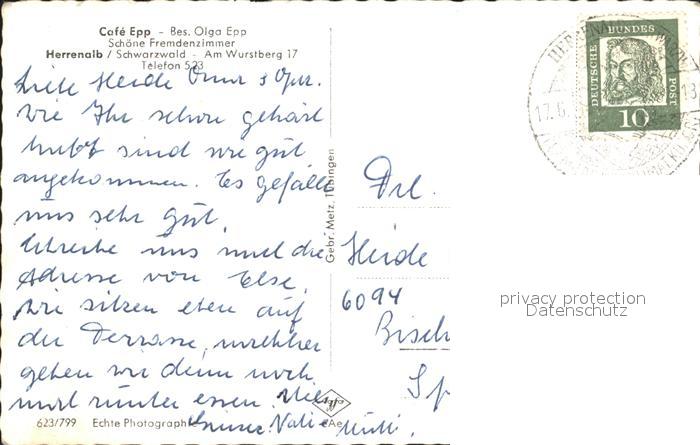 Café Epp – Bes. Olga Epp
Schöne Fremdenzimmer
Herrenalb / Schwarzwald - Am Wurstberg 17
Telefon 523
Liebe Heide Oma u Opa.
Wie Ihr schon gehört
habt sind wir gut
angekommen. Es gefällt
uns sehr gut.
Schreibe uns mal die
Adresse von Else.
Wir sitzen eben auf
der Terrasse, nachher
gehen wir dann noch
mal runter essen. Viele
623/799 Echte Photographie
Gebr. Metz, Tübingen
DEUTSCHE BUNDES POST
10
17.6.
Frl.
Heide
6094
Bisch
privacy protection
Datenschutz